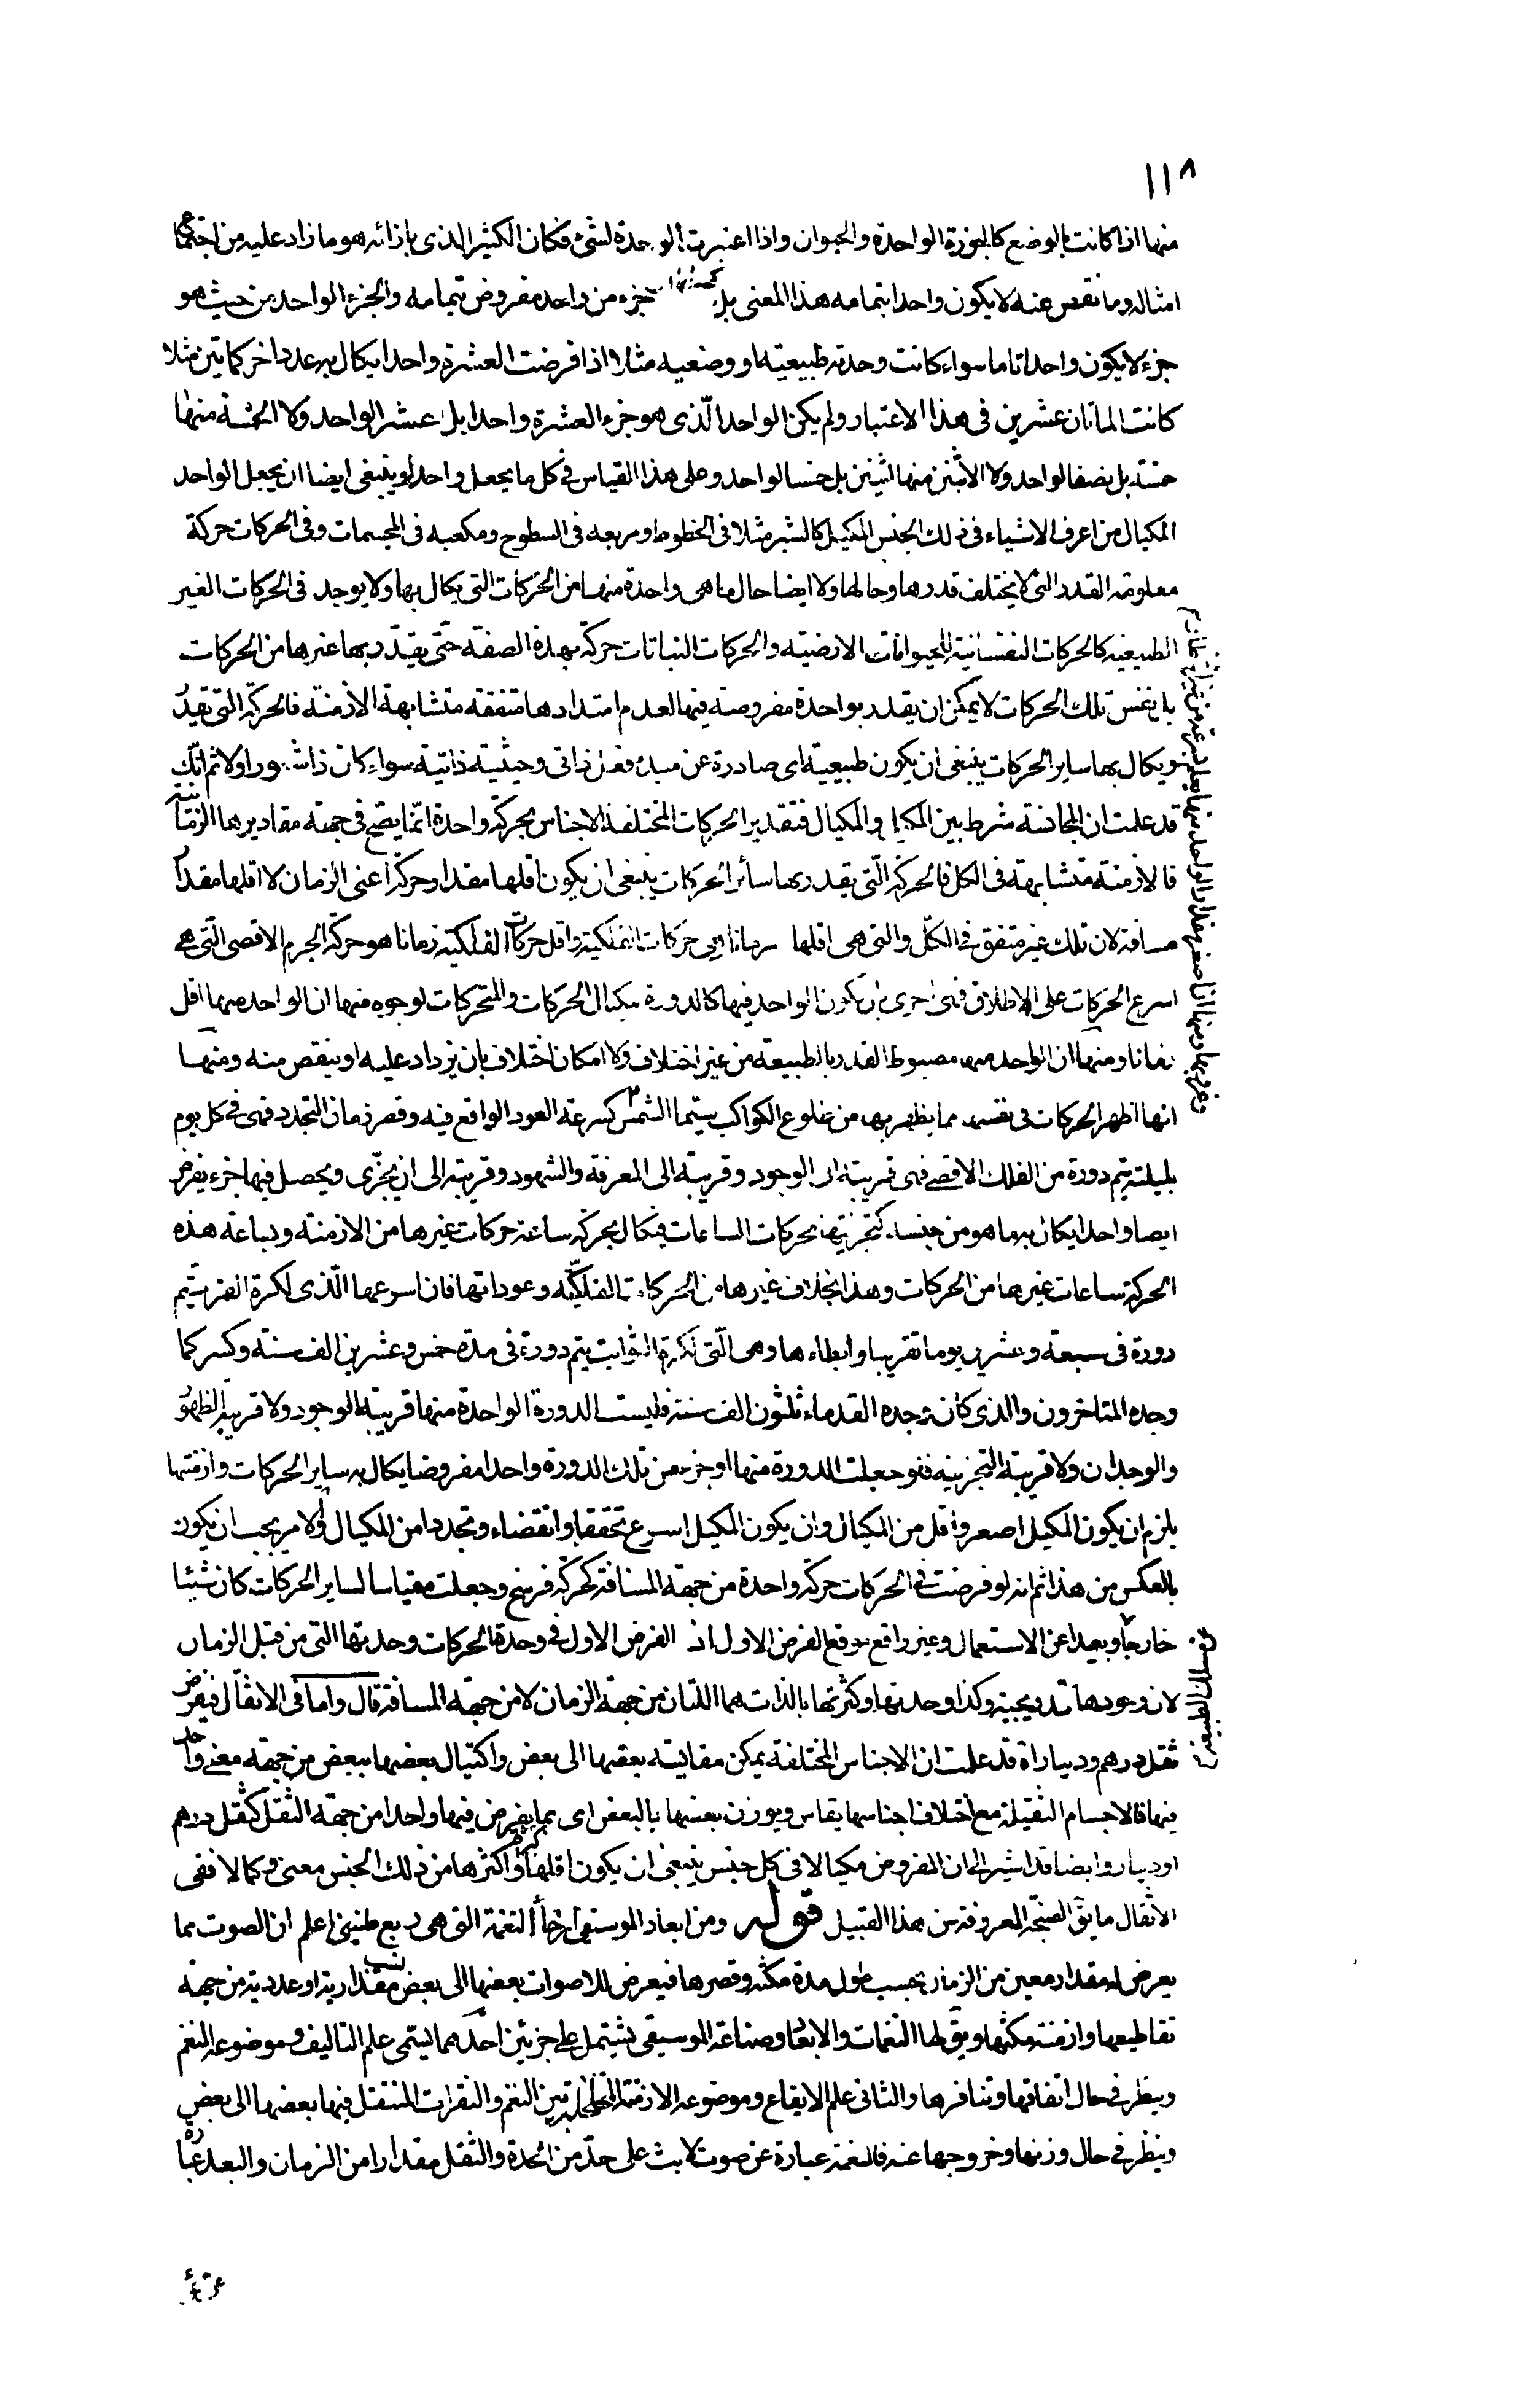 ١١٨
منها اذا كانت بالوضع كالجوزة الواحدة والحيوان واذا اعتبرت الوحدة لشئ فكان الكثير الذى بازائه هو ما زاد عليه من اجتماع
امثاله وما نقص عنه لا يكون واحدا بتمامه هذا المعنى بل جزء من واحد مفروض بتمامه والجزء الواحد من حيث هو
جزء لا يكون واحدا تاما سواء كانت وحدته طبيعية او وضعيه مثلا اذا فرضت العشرة واحدا يكال به عدد اخر كمأتين مثلا
كانت المأتان عشرين فى هذا الاعتبار ولم يكن الواحد الّذى هو جزء العشرة واحدا بل عشر الواحد ولا الخمسة منها
خمسة بل نصف الواحد ولا الاثنين منها اثنين بل خمس الواحد وعلى هذا القياس فى كل ما يجعل واحدا وينبغى ايضا ان يجعل الواحد
المكيال من اعرف الاشياء فى ذلك الجنس المكيل كالشبر مثلا فى الخطوط ومربعه فى السطوح ومكعبه فى المجسمات وفى الحركات حركة
معلومة القدر التى لا يختلف قدرها وحالها ولا ايضا حال ما هى واحدة منها من الحركات التى يكال بها ولا يوجد فى الحركات الغير
الطبيعية كالحركات النفسانية للحيوانات الارضية والحركات النباتات حركة بهذه الصفة حتّى يقدّر بها غيرها من الحركات
بل نفس تلك الحركات لا يمكن ان يقدر بواحدة مفروضة فيها لعدم امتدادها متفقة متشابهة الازمنة فالحركة التى تقدر
ويكال بها ساير الحركات ينبغى ان يكون طبيعية اى صادرة عن مبدء فعل ذاتى وحيثية ذاتية سواء كان ذا شعور اولا ثم انّك
قد علمت ان المجانسة شرط بين المكيل والمكيال فتقدير الحركات المختلفة الاجناس بحركة واحدة انّما يصح فى جهة مقاديرها الزمانية
فالازمنة متشابهة فى الكل فالحركة الّتى يقدر بها سائر الحركات ينبغى ان يكون اقلها مقدار حركة اعنى الزمان لا اقلها مقدار
مسافة لان تلك غير متفق فى الكلّ والتى هى اقلها زمانا هى حركات الفلكية واقل حركات الفلكية زمانا هو حركة الجرم الاقصى الّتى هى
اسرع الحركات على الاطلاق فهى احرى بان يكون الواحد فيها كالدورة مكيال الحركات والمتحركات لوجوه منها ان الواحد منها اقل
زمانا ومنها ان الواحد منها مضبوط القدر بالطبيعة من غير اختلاف ولا امكان اختلاف بان يزداد عليه او ينقص منه ومنها
انها اظهر الحركات فى نفسه مما يظهر بها من طلوع الكواكب سيّما الشمس كسرعة العود الواقع فيه وقصر زمان التجدد فهى فى كل يوم
بليلته يتم دورة من الفلك الاقصى فهى قريبة الى الوجود وقريبة الى المعرفة والشهود وقريبة الى ان يجزّى ويحصل فيها جزء يفرض
ايضا واحدا يكال به ما هو من جنسه كتجزيتها بحركات الساعات فيكال بحركة ساعة حركات غيرها من الازمنة وبساعة هذه
الحركة ساعات غيرها من الحركات وهذا بخلاف غيرها من الحركات الفلكيّة وعوداتها فان اسرعها الّذى لكرة القمر يتم
دورة فى سبعة وعشرين يوما تقريبا وابطاءها وهى الّتى لكرة الثوابت يتم دورة فى مدة خمس وعشرين الف سنة وكسر كما
وجده المتاخرون والذى كان وجده القدماء ثلثون الف سنة فليست الدورة الواحدة منها قريبة الوجود ولا قريبة الظهور
والوجدان ولا قريبة التجزية فلو جعلت الدورة منها او جزء من تلك الدورة واحدا مفروضا يكال به ساير الحركات وازمنتها
يلزم ان يكون المكيل اصغر واقل من المكيال وان يكون المكيل اسرع تحققا وانقضاء وتجددا من المكيال والامر يجب ان يكون
بالعكس من هذا ثم انه لو فرضت فى الحركات حركة واحدة من جهة المسافة كحركة فرسخ وجعلت مقياسا لساير الحركات كان شيئا
خارجا وبعيدا عن الاستعمال وغير واقع موقع الفرض الاول اذ الفرض الاول فى وحدة الحركات وحدتها التى من قبل الزمان
لان وجودها تدريجية وكذا وحدتها وكثرتها بالذات هما اللتان من جهة الزمان لا من جهة المسافة قال واما فى الاثقال فيفرض
ثقل درهم ودينار اة قد علمت ان الاجناس المختلفة يمكن مقايسة بعضها الى بعض واكتيال بعضها ببعض من جهة معنى واحد
فيها فالاجسام الثقيلة مع اختلاف اجناسها يقاس ويوزن بعضها بالبعض اى بما يفرض فيها واحدا من جهة الثقل كثقل درهم
او دينار وايضا قد اشير الى ان المفروض مكيالا فى كل جنس ينبغى ان يكون اقلها واكثرها من ذلك الجنس معنى وكمالا ففى
الاثقال ما يق الصنجة المعروفة من هذا القبيل قوله ومن ابعاد الموسيقى ارخاء النغمة التى هى ربع طنينى اعلم ان الصوت مما
يعرض له مقدار معين من الزمان بحسب طول مدة مكثه وقصرها فيعرض للاصوات بعضها الى بعض نسب مقدارية او عددية من جهة
تقاطيعها وازمنة مكثها ويق لها النغمات والابعاد وصناعة الموسيقى يشتمل على جزئين احدهما يسمّى علم التاليف وموضوعه النغم
وينظر فى حال اتفاقها وتنافرها والثانى علم الايقاع وموضوعه الازمنة المتخللة بين النغم والنقرات المنتقل فيها بعضها الى بعض
وينظر فى حال وزنها وخروجها عنه فالنغمة عبارة عن صوت لابث على حدّ من الحدة والثقل مقدارا من الزمان والبعد عبارة